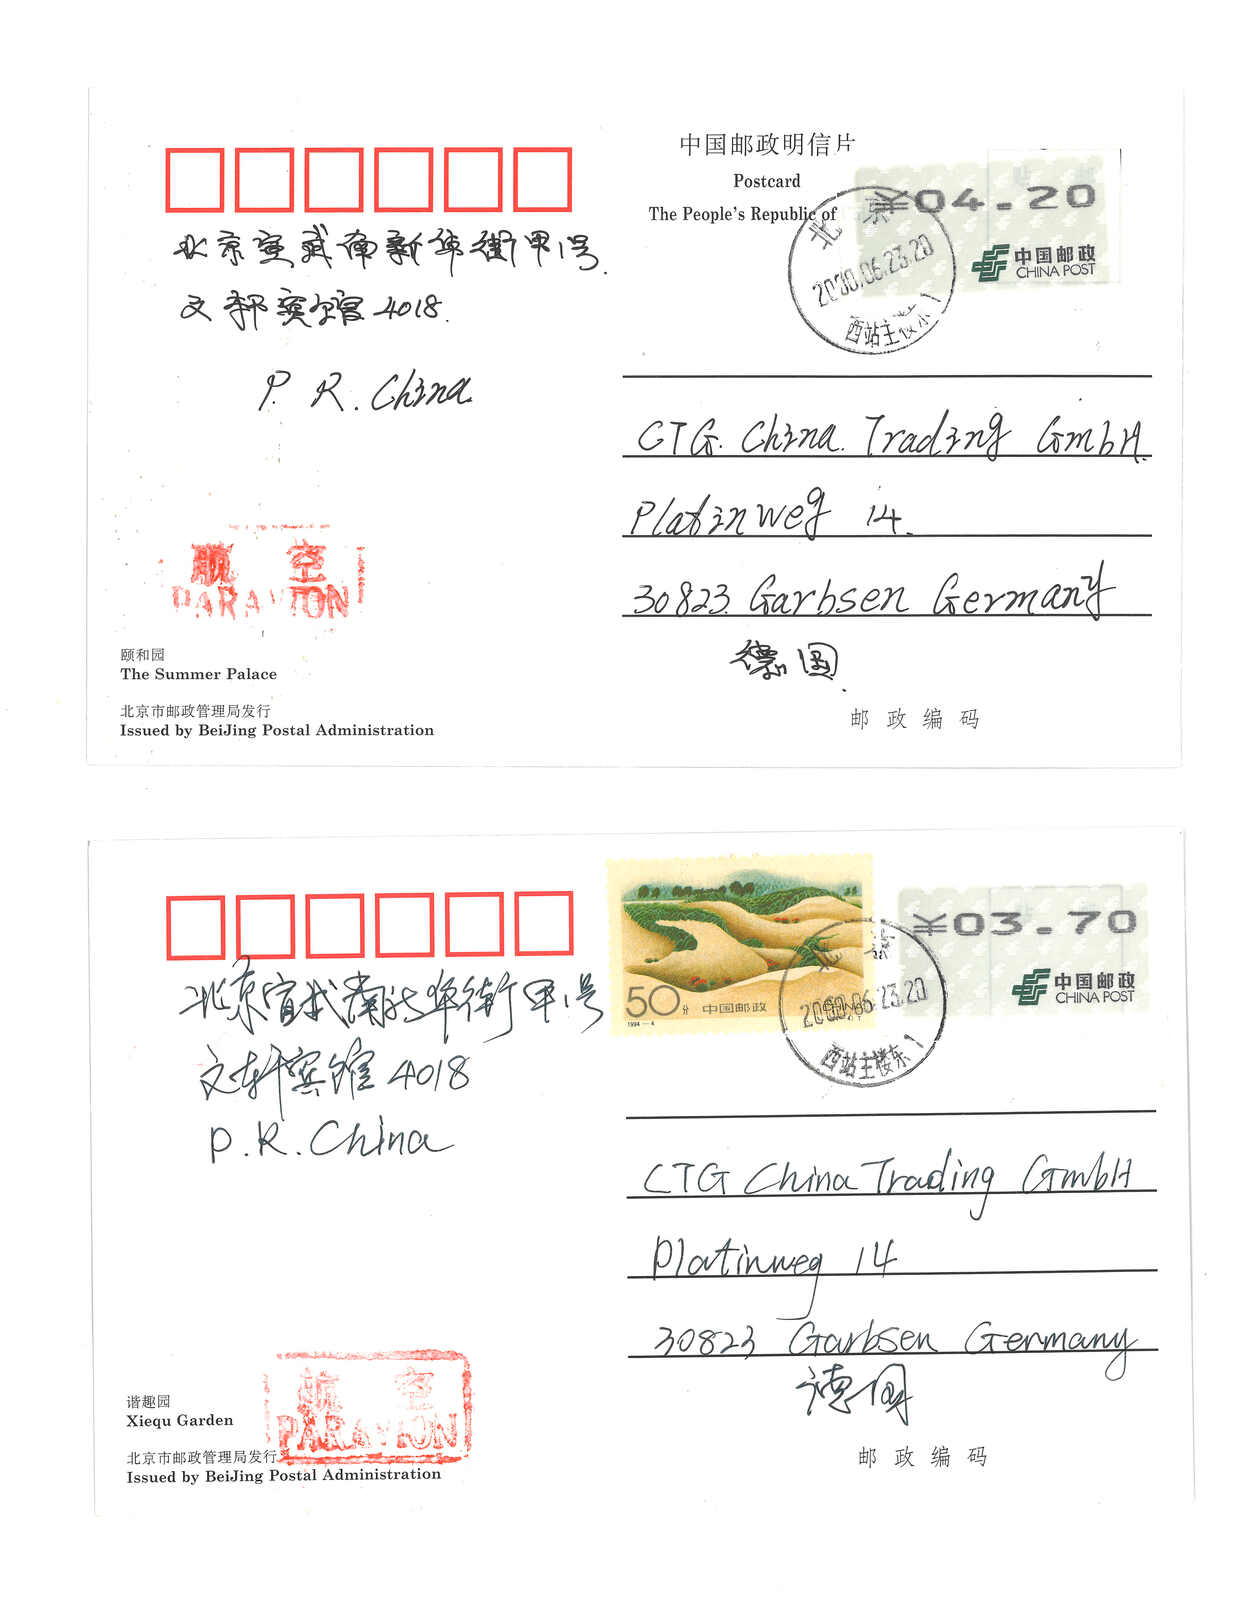 中国邮政明信片
Postcard
The People's Republic of
¥04.20
中国邮政
CHINA POST
北京
2000.06.23.20
西站主楼东1
北京宣武南新华街甲1号.
文轩宾馆 4018.
P. R. China
CTG. China. Trading GmbH.
Platinweg 14.
30823. Garbsen Germany
德国.
航空
PAR AVION
颐和园
The Summer Palace
北京市邮政管理局发行
Issued by BeiJing Postal Administration
邮政编码
50分 中国邮政
1994-4
¥03.70
中国邮政
CHINA POST
北京
2000.06.23.20
西站主楼东1
北京宣武南新华街甲1号
文轩宾馆 4018
P. R. China
CTG China Trading GmbH
Platinweg 14
30823 Garbsen Germany
德国
航空
PAR AVION
谐趣园
Xiequ Garden
北京市邮政管理局发行
Issued by BeiJing Postal Administration
邮政编码